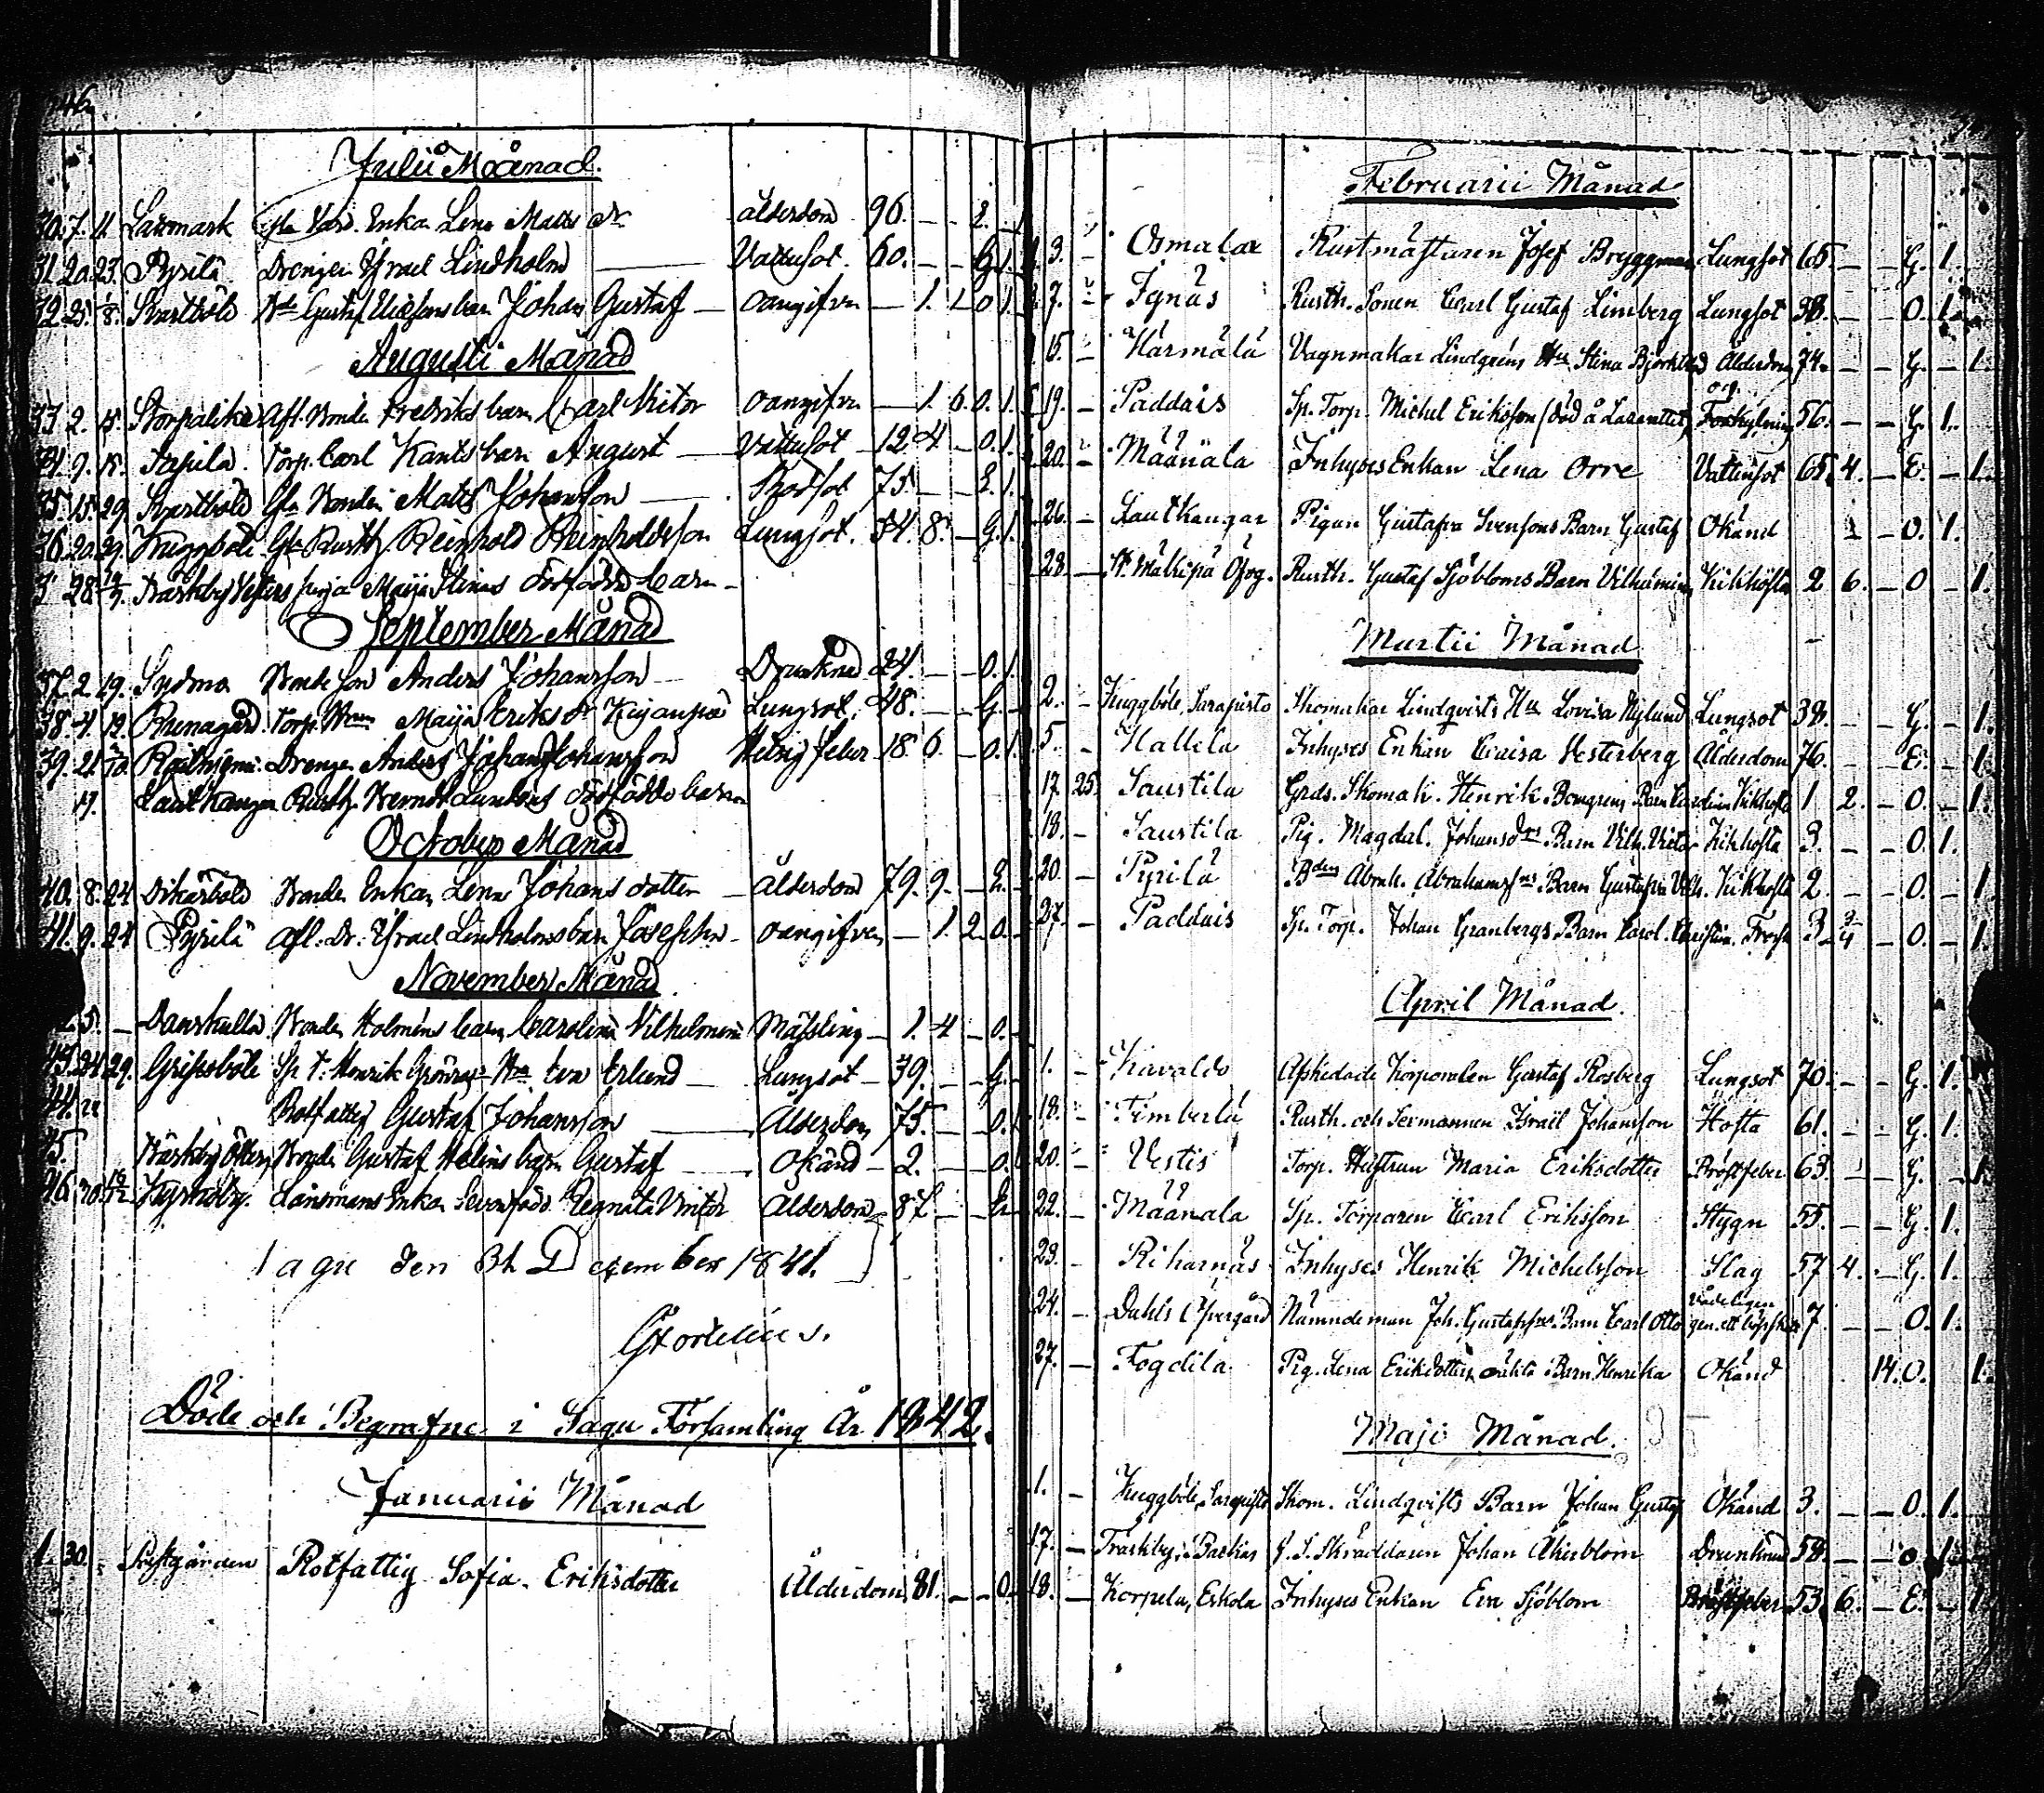 46.
Julii Månad.
30. 7. 11. Laxmark Gla Enka Lena Matts dr ålderdom 96. — — E. —
31. 20. 23. Pyrilä Drengen Israel Lindholm Vattusot. 60. — — G. 1.
32. 25. 1/8. Svartböle Gustaf barn Johan Gustaf — oangifven — 1. 1. 0 1.
Augusti Månad
33. 2. 15. Storpaltka Afl. Bonde Fredriks barn Carl Victor oangifven — 1. 6. 0. 1.
34. 9. 15. Torp. Carl Kants barn August — Vattusot — 12. 4 — 0. 1.
35. 15. 29. Svartböle Gla Bonden Matts Johansson — Rödsot 75. — — E. 1.
36. 20. 29. Kuggböle Gla Rusth. Reinhold Reinholdsson Lungsot. 54 8. — G. 1.
28. Träskby piga Maija Stinas Dödfödda barn —
September Månad
37. 2. 19. Sydmo Bonde son Anders Johansson — Drunknad 24. — — 0. 1.
38. 4. 12. Torp. Maija Eriks dr Lungsot. 48. — — G. —
39. 21. Drengen Anders Johan Johansson Hetsig feber 18. 6. — 0. 1.
Lautkangar Rusth. Dödfödde barn
October Månad
40. 8. 24 Bonde Enkan Lena Johans dotter — Ålderdom 79. 9. — E. —
41. 9. 24 Pyrilä afl. Dr. Israel Lindholms barn Josephin — oangifven — 1. 2. 0. —
November Månad
5. — Danskulla Bonden Holméns barn Carolina Vilhelmina Mässling — 1. 4 — 0. —
43. 24. 29. Gripsböle Sp. T. Henrik Eva Erlund — Lungsot — 39. — — G. —
44. Rotfattig Gustaf Johansson — Ålderdom 75. — — 0. 1
45. Träskby Bonden Gustaf Heléns barn Gustaf — Okänd — 2. — — 0.
46. 30. Kyrkoby. Länsmans Enkan Regnata Ålderdom 87. — — E.
Sagu den 31. December 1841.
Döde och Begrafne i Sagu Församling År 1842.
Januarii Månad
1. 30. Prestgården Rotfattig Sofia Eriksdotter Ålderdom 81. — — 0. —
Februarii Månad
3. — Osmalax Rustmästaren Josef Bryggman Lungsot 65. — — G. 1.
7. — Tynäs Rusth. Sonen Carl Gustaf Limberg Lungsot 38. — — O. 1.
15. — Härmälä Vagnmakar Lindgréns Hu Stina Björklund Ålderdom 74. — — G. — 1.
19. — Paddais Sp. Torp. Michel Eriksson (död å Lazarettet) Förkylning 56. — — G. 1.
20. — Määnälä Inhyses Enkan Lena Orre Vattusot 65. 4. — E. — 1.
26. — Lautkangar Pigan Gustafva Svensons Barn Gustaf Okänd — O. 1.
28. — N. Mälkipä Öfog. Rusth. Gustaf Sjöbloms Barn Vilhelmina Kikhosta 2 6. — O — 1.
Martii Månad
2. — Kuggböle, Sarapisto Skomakar Lindqvists Hu Lovisa Nylund Lungsot 38. — — G. — 1.
5. — Hallela Inhyses Enkan Caisa Vesterberg Ålderdom 76. — — E. — 1.
17. 25. Saustila Grds. Skomak. Henrik Barn Carolina Kikhosta 1 2. — O. — 1.
18. — Saustila Pig. Magdal. Johansdrs Barn Vilh. Victor Kikhosta 3. — — O. 1.
20. — Pyrilä Bden Abrah. Abrahamsfns Barn Gustafva Vilh. Kikhosta 2. — — O. — 1.
27. — Paddais Sp. Torp. Johan Granbergs Barn Carol. Christina 3 — 3/4 — O. — 1.
April Månad.
1. — Karvaldo Afskedade Korporalen Gustaf Rosberg Lungsot 70. — — G. 1.
18. — Timberlä Rusth. och Sexmannen Israël Johansson Hosta 61. — — G. 1.
20. — Vestis Torp. Hustrun Maria Eriksdotter Bröstfeber 63. — — G. — 1.
22. — Määnälä Sp. Torparen Carl Eriksson Stygn 55. — — G. 1.
23. — Riharnäs Inhyses Henrik Michelsson Slag 57 4. — G. 1.
24. — Dahls Öfvergård Nämndeman Joh. Gustafsfns Barn Carl Otto vådeligen gen. ett 7. — — O. 1.
27. — Fogdila Pig. Lena Eriksdotters oäkta Barn Henrika Okänd 14. O. 1.
Maji Månad.
1. — Kuggböle, Sarapisto Skom. Lindqvists Barn Johan Gustaf Okänd 3. — — O. 1.
17. — Träskby, Backas G. S. Skräddaren Johan Åkerblom Drunknad 58. — — O. 1.
18. — Korpela, Eskola Inhyses Enkan Eva Sjöblom Bröstfeber 53. 6. — E. — 1.